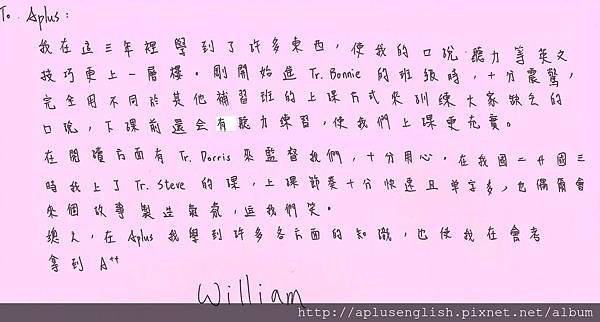 To. Aplus:
我在這三年裡學到了許多東西,使我的口說、聽力等英文
技巧更上一層樓。剛開始進 Tr. Bonnie 的班級時,十分震驚,
完全用不同於其他補習班的上課方式來訓練大家缺乏的
口說,下課前還会有聽力練習,使我們上課更充實。
在閱讀方面有 Tr. Dorris 來監督我們,十分用心。在我國二升國三
時我上了 Tr. Steve 的課,上課節奏十分快速且单字多,也偶爾會
來個故事製造氣氛,逗我們笑。
總之,在 Aplus 我學到許多各方面的知識,也使我在會考
拿到 A++
William
http://aplusenglish.pixnet.net/album